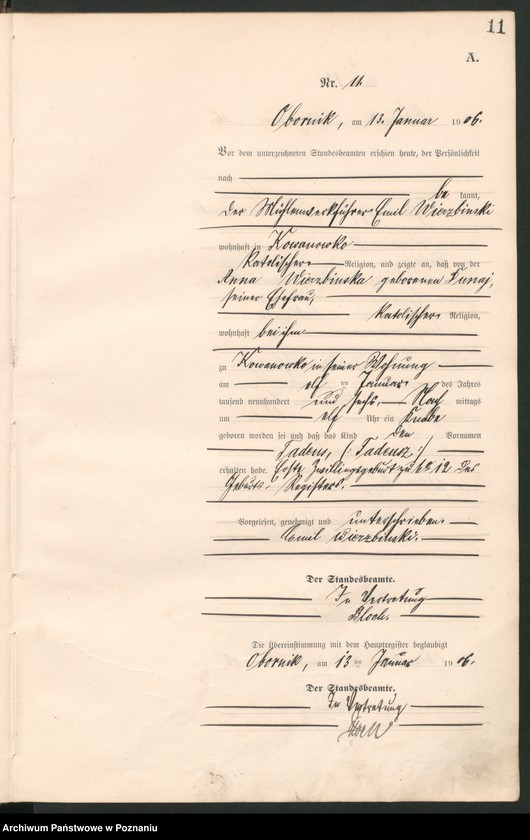 11
A.
Nr. 11.
Obornik, am 13. Januar 1906.
Vor dem unterzeichneten Standesbeamten erschien heute, der Persönlichkeit
nach
be kannt,
der Mühlenwerkführer Emil Wierzbinski
wohnhaft in Kowanowko
katolischer Religion, und zeigte an, daß von der
Anna Wierzbinska geborenen Dunaj,
seiner Ehefrau,
katolischer Religion,
wohnhaft bei ihm
zu Kowanowko in seiner Wohnung
am elf ten Januar des Jahres
tausend neunhundert und sechs, Nach mittags
um elf Uhr ein Knabe
geboren worden sei und daß das Kind den Vornamen
Tadeus, (: Tadeusz :)
erhalten habe. Erste Zwillingsgeburt zu No 12 des
Geburts-Registers.
Vorgelesen, genehmigt und unterschrieben
Emil Wierzbinski.
Der Standesbeamte.
In Vertretung
Die Übereinstimmung mit dem Hauptregister beglaubigt
Obornik, am 13 ten Januar 1906.
Der Standesbeamte.
In Vertretung
Archiwum Państwowe w Poznaniu